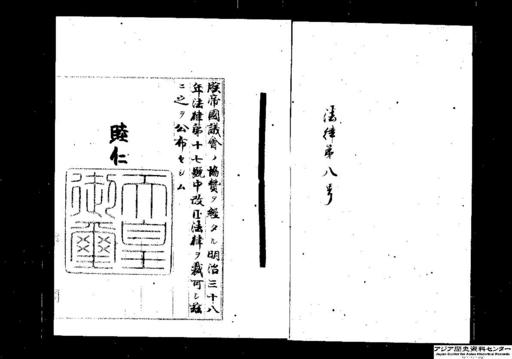 法律第八号
朕帝國議會ノ協賛ヲ經タル明治三十八
年法律第十七號中改正法律ヲ裁可シ茲
ニ之ヲ公布セシム
睦仁
天皇
御璽
アジア歴史資料センター
Japan Center for Asian Historical Records